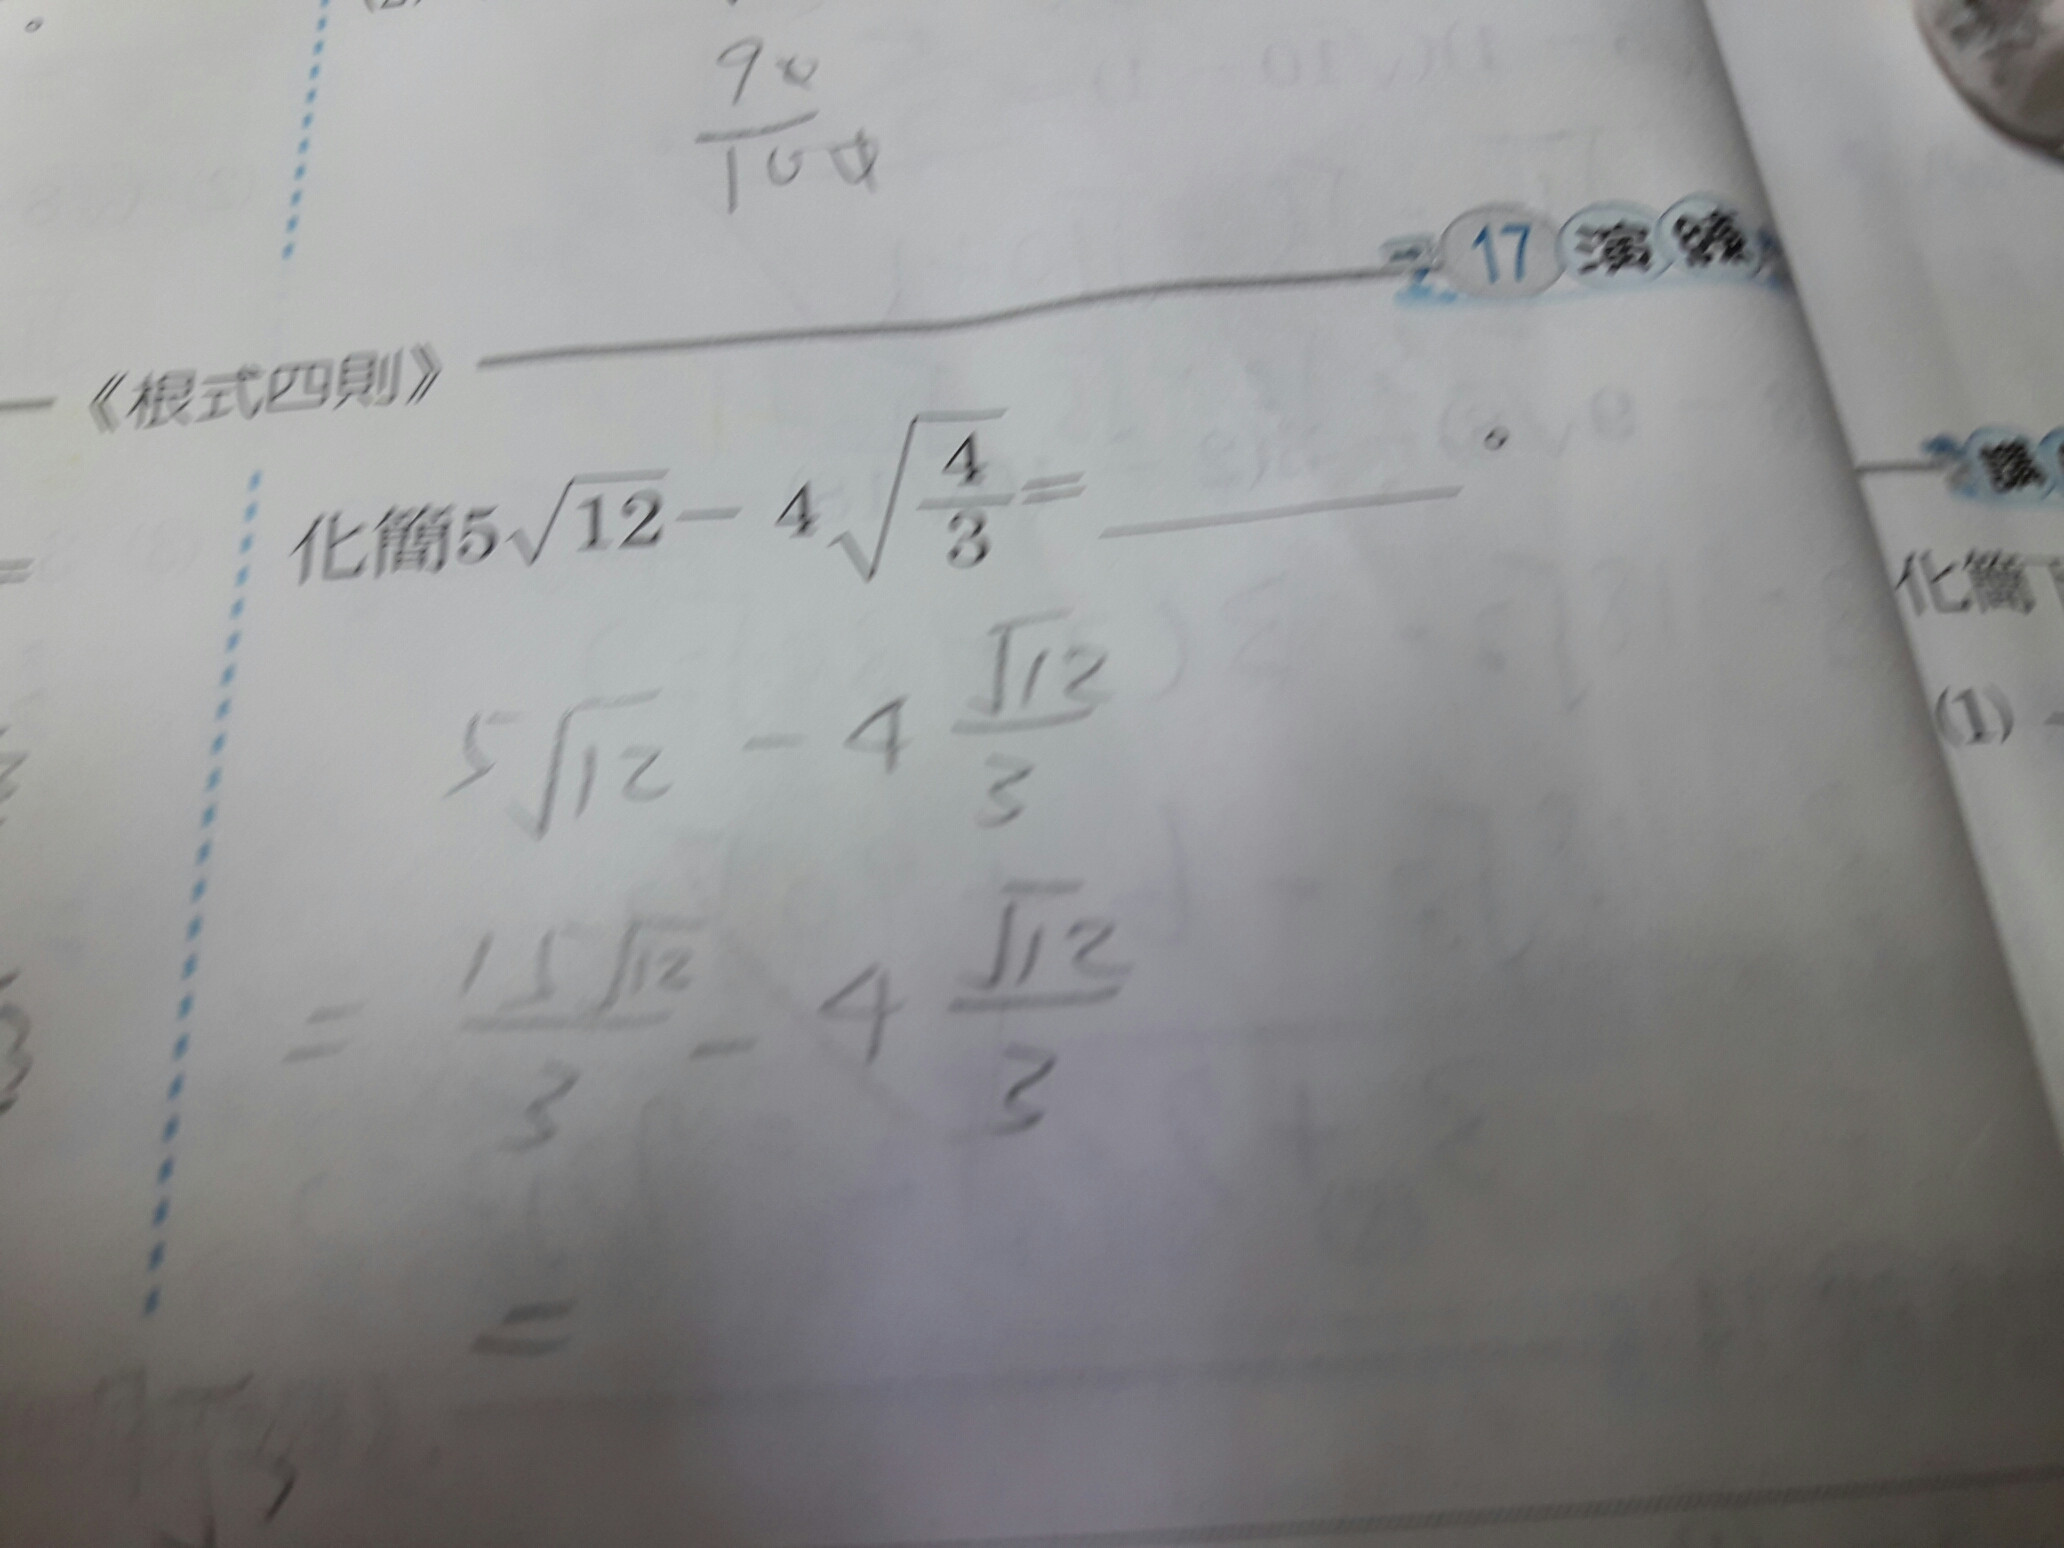 90
100
17 演練
《根式四則》
化簡5√12 − 4√(4/3) = ______。
5√12 − 4 √12/3
= 15√12/3 − 4 √12/3
=
化簡
(1)